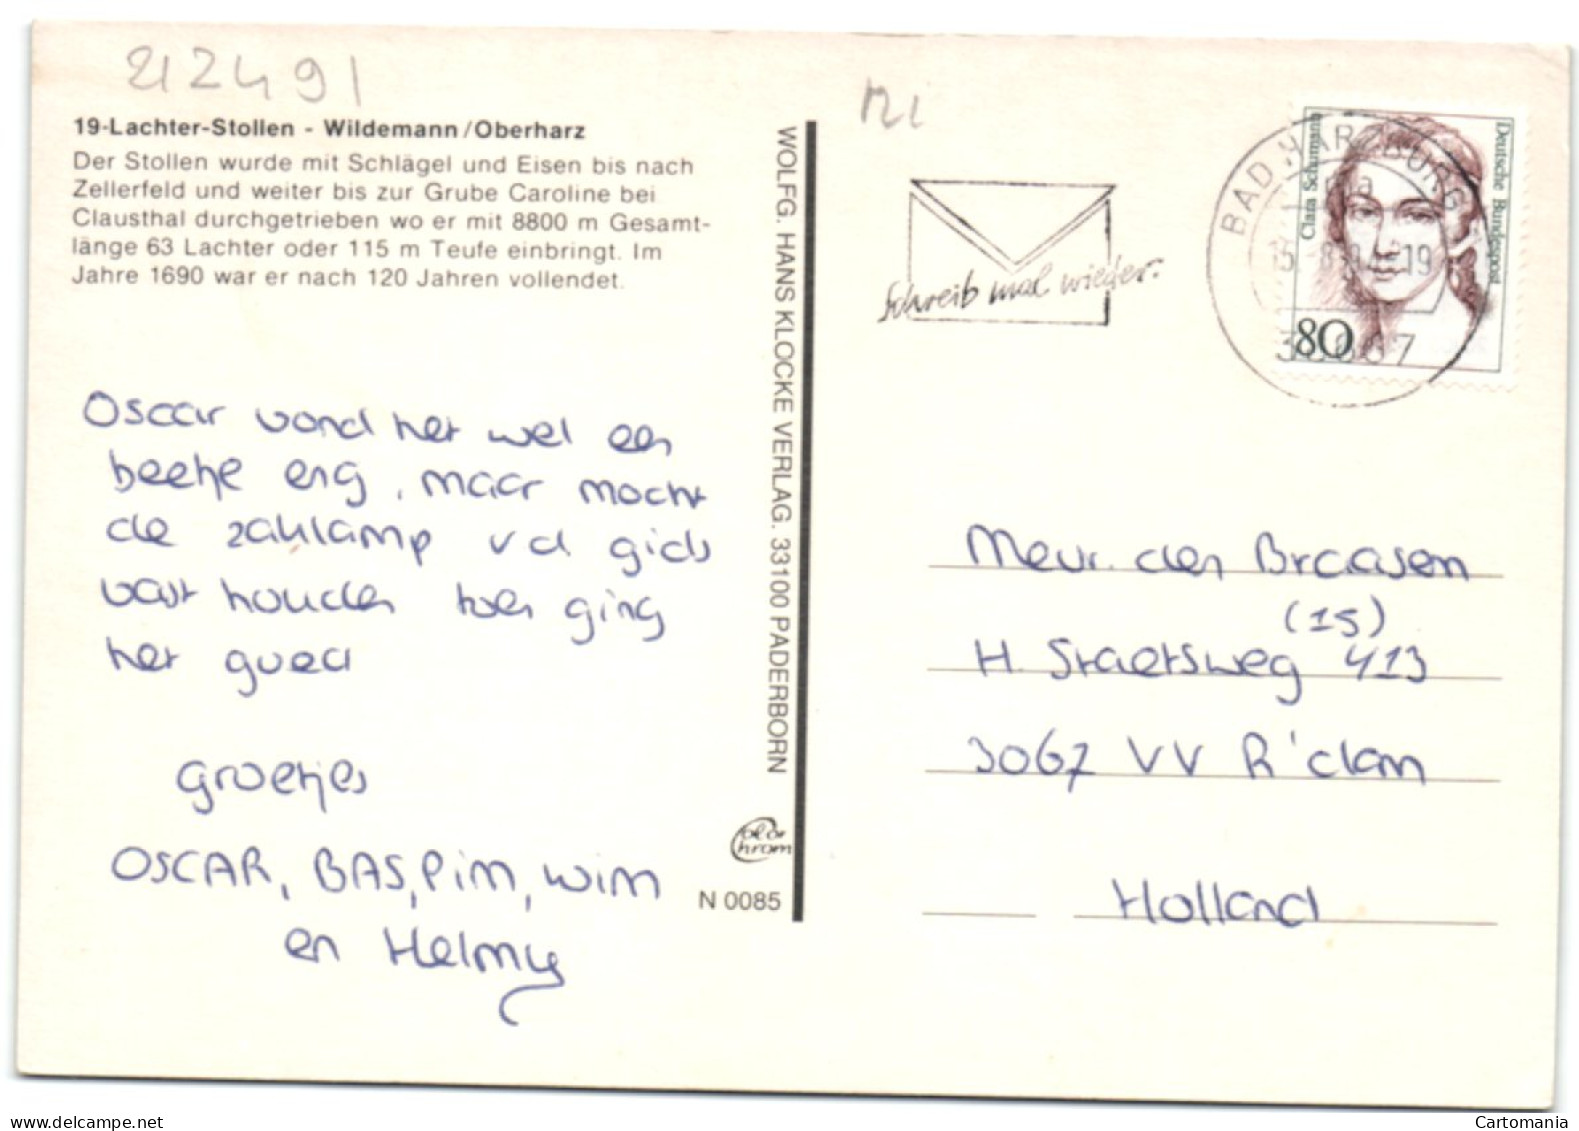 212491
19-Lachter-Stollen - Wildemann/Oberharz
Der Stollen wurde mit Schlägel und Eisen bis nach
Zellerfeld und weiter bis zur Grube Caroline bei
Clausthal durchgetrieben wo er mit 8800 m Gesamt-
länge 63 Lachter oder 115 m Teufe einbringt. Im
Jahre 1690 war er nach 120 Jahren vollendet.
Oscar vond het wel een
beetje eng, maar mocht
de zaklamp v d gids
vast houden toen ging
het goed
groetjes
OSCAR, BAS, Pim, Wim
en Helmy
WOLFG. HANS KLOCKE VERLAG. 33100 PADERBORN
Color
Chrom
N 0085
Schreib mal wieder.
BAD HARZBURG
Clara Schumann
Deutsche Bundespost
80
Meur. den Braasem
(15)
H. Staetsweg 413
3067 VV R'dam
Holland
delcampe.net
Cartomania